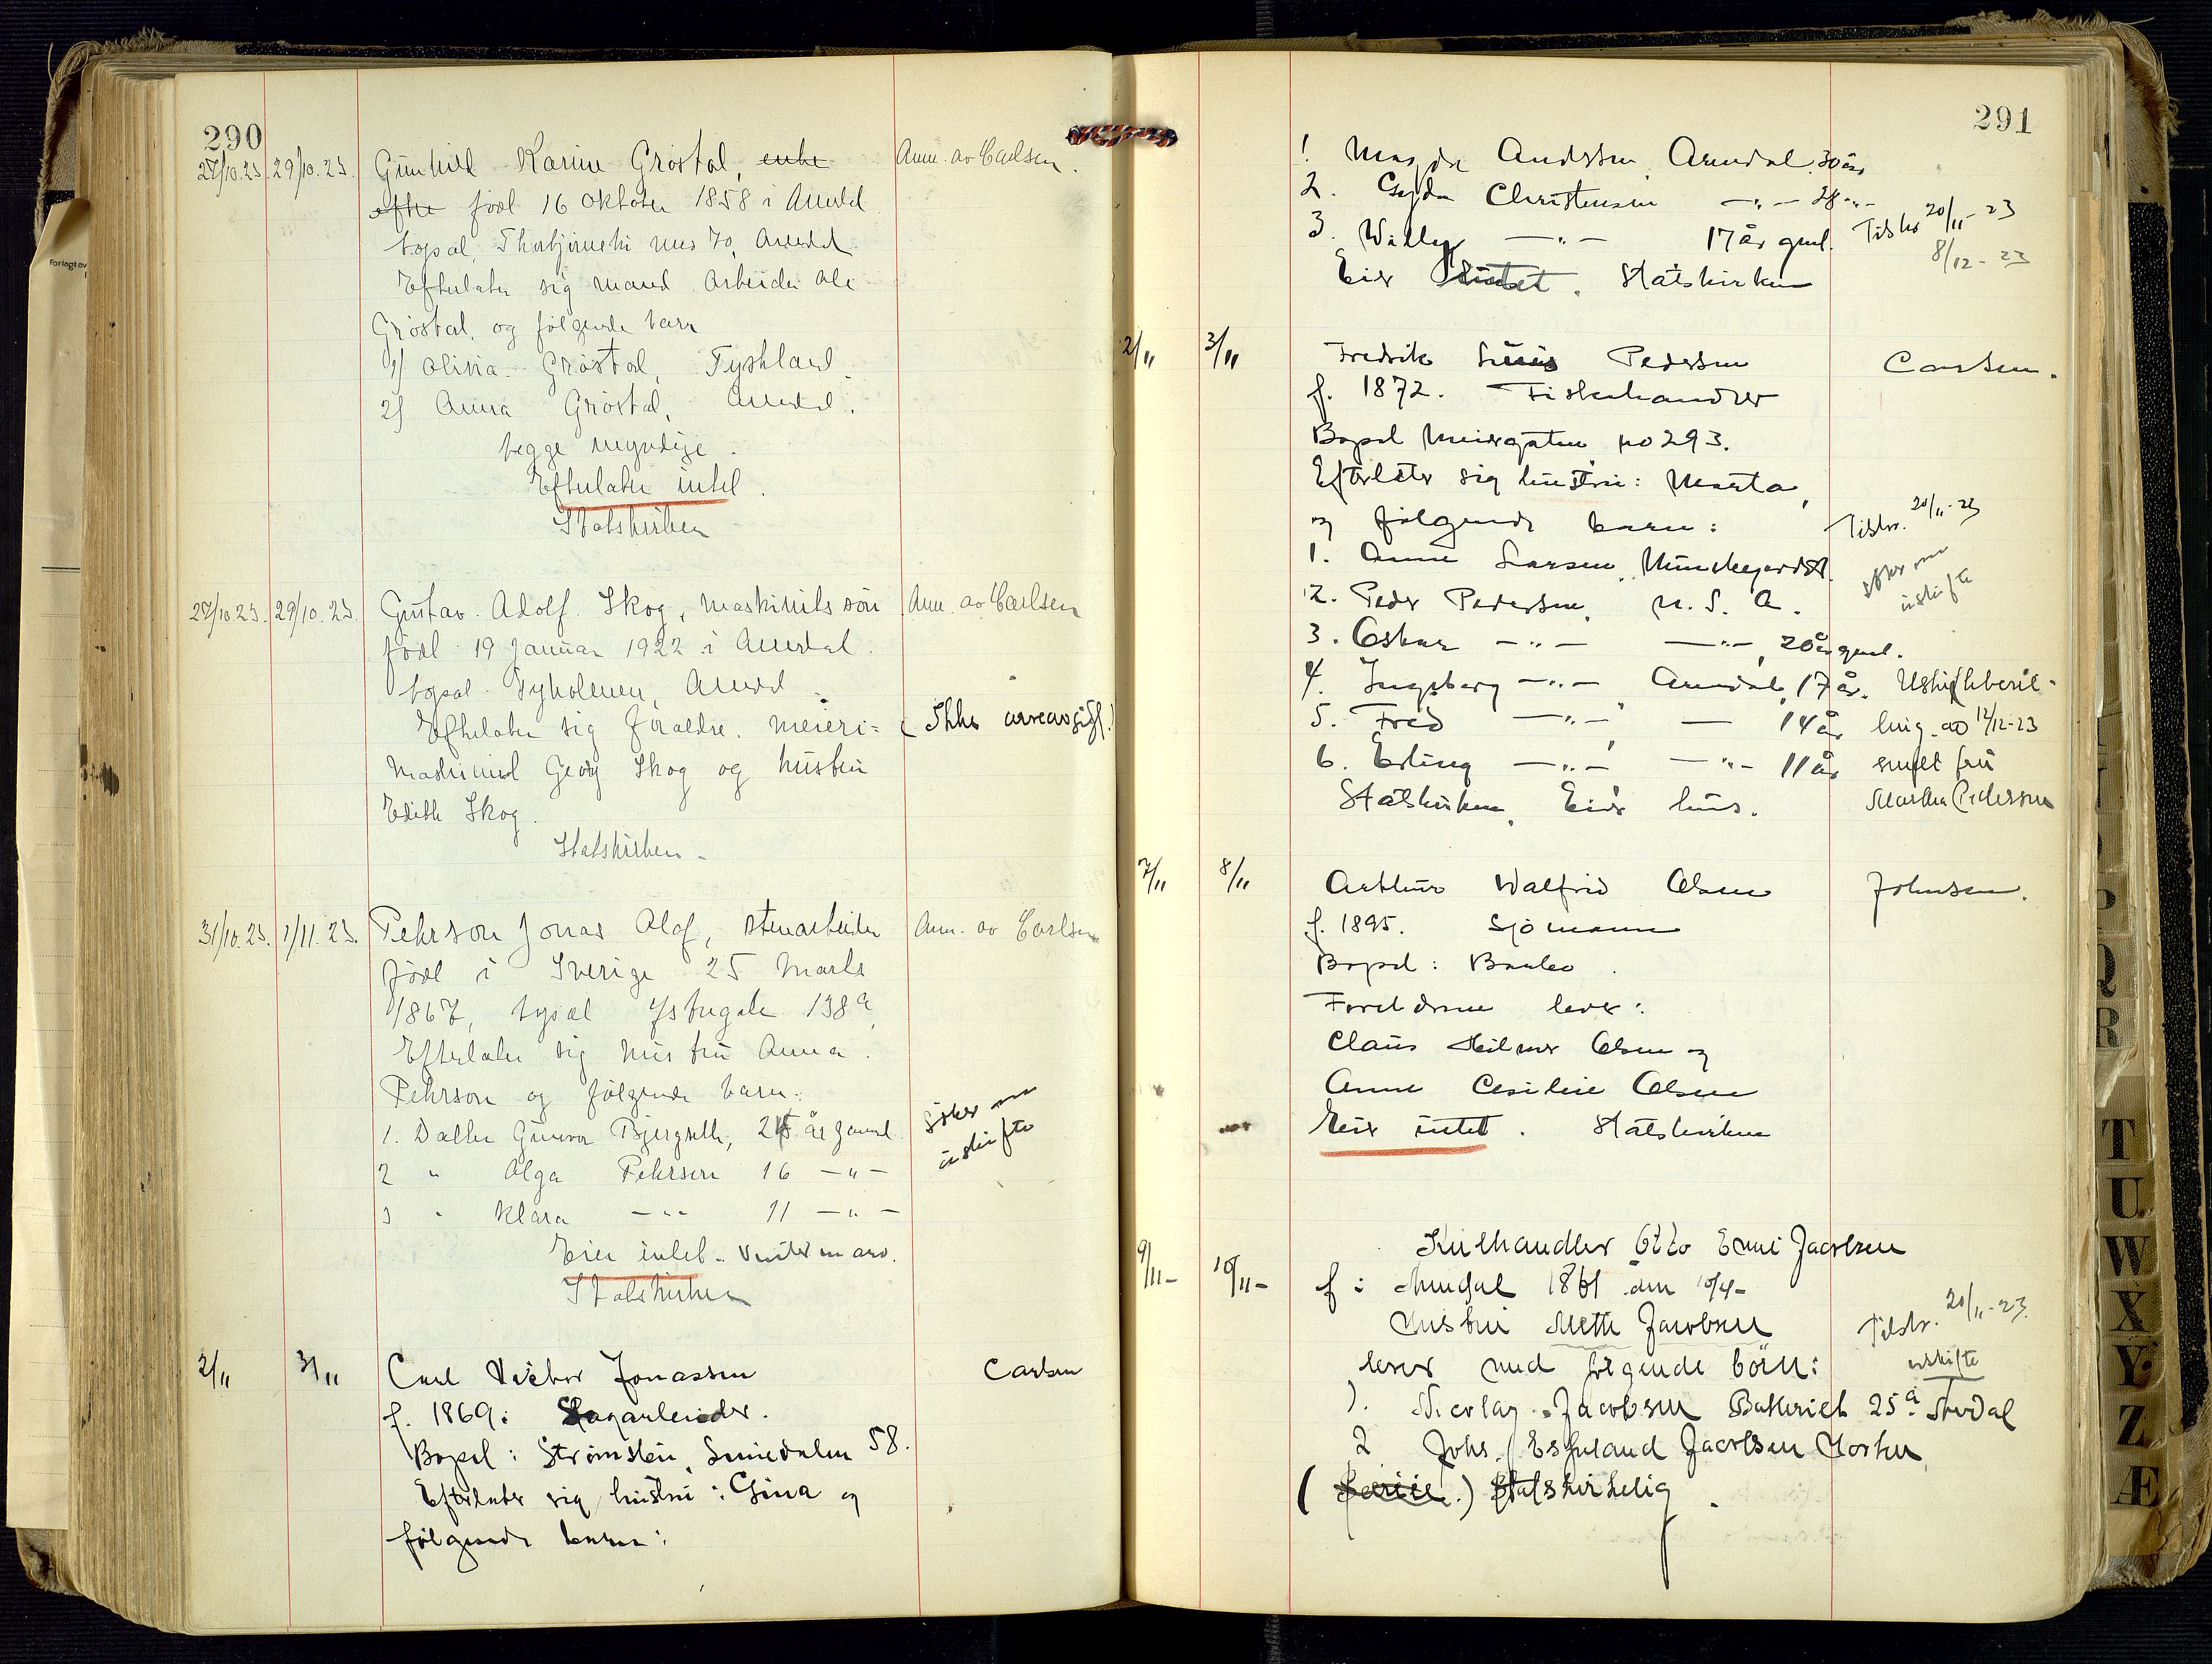 290
27/10.23. 29/10.23. Gunhild Karine Grøstøl, enke Anm. av Carlsen.
efter född 16 Oktober 1858 i Arendal
bopæl, Thorbjørnsbro no 70, Arendal
Efterlater sig mand Arbeider Ole
Grøstøl, og følgende barn
1) Olivia Grøstøl, Tyskland.
2) Anna Grøstøl, Arendal.
begge myndige.
Efterlater intet.
Statskirken
27/10.23. 29/10.23. Gustav Adolf Skog, maskinists søn Anm. av Carlsen
född 19 Januar 1922 i Arendal.
bopæl Tyholmen, Arendal
Efterlater sig forældre, meieri= (Ikke arveavgift!)
maskinist Georg Skog og hustru
Edith Skog.
Statskirken.
31/10.23. 1/11.23. Pehrson Jonas Olof, stenarbeider Anm. av Carlsen
född i Sverige 25 Marts
1867, bopæl Ystregate 138a,
Efterlater sig hustru Anna
Pehrson og følgende barn:
1. Datter Gunvor Bjergseth, 25 år gammel
søker om
uskifte
2 " Olga Pehrson 16 —"—
3 " Klara —"— 11 —"—
Eier intet.
Statskirken
2/11 3/11 Carl Victor Jonassen Carlsen
f. 1869: Sagarbeider.
Bopel: Strømsbu, Smiedalen 58.
Efterlater sig hustru: Gina og
følgende barn:
291
1 Magda Anderssen, Arendal 30 år
2. Gyda Christensen —"— 28 —"—
3. Willy —"— 17 år gml. Tilskr 20/11-23
8/12-23
Eier intet. Statskirken
2/11 3/11 Fredrik Linus Pedersen Carlsen.
f. 1872. Fiskehandler
Bopel Meiergaten no 293.
Efterlater sig hustru: Marta,
og følgende barn: Tilskr. 20/11-23
1. Anne Larsen, Munkegårdst. søker om
uskifte
2. Peder Pedersen, U. S. A.
3. Oskar —"— —"—, 20 år gml.
4. Ingeborg —"— Arendal, 17 år. Uskiftebevil-
5. Fred —"—, — 14 år ling. av 12/12-23
6. Erling —"—, —"— 11 år sendt fru
Statskirken, Eier hus. Martha Pedersen
7/11 8/11 Arthur Walfrid Olsen Johnsen.
f. 1895. Sjømann
Bopel: Barbo.
Foreldrene lever:
Claus Hilmer Olsen og
Anne Cesilie Olsen
Eier intet. Statskirken
9/11- 10/11- Kulhandler Otto Emil Jacobsen
f: Arendal 1861 den 10/4-
Hustru Mette Jacobsen Tilskr. 20/11-23.
lever med følgende börn: uskifte
1. Nicolay Jacobsen Batteriet 25a Arendal
2 Johs. Esjeland Jacobsen Horten
( ) Statskirkelig.
Forlagt av
P
Q
R
T
U
W
X
Y
Z
Æ